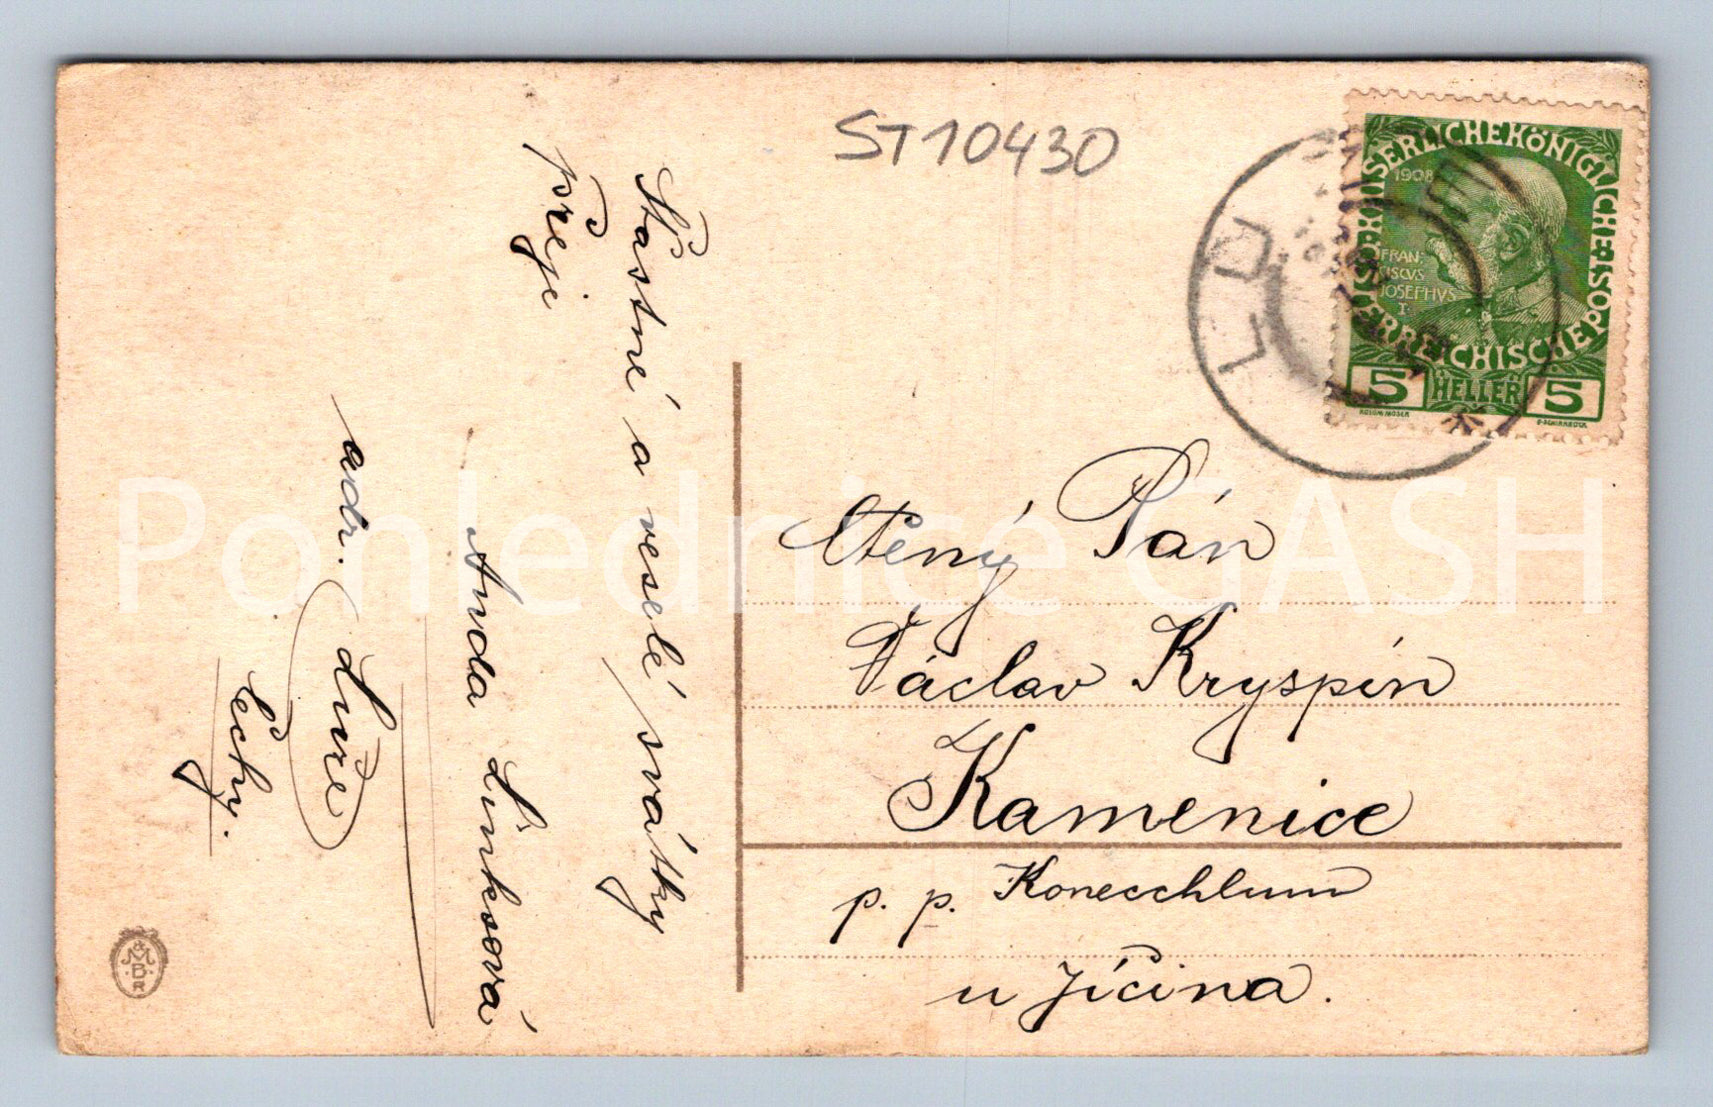 ST10430
KAISERLICHE KÖNIGLICHE ÖSTERREICHISCHE POST
1908
FRAN-
CISCVS
JOSEPHVS
I
5 HELLER 5
KOLOM. MOSER
F. SCHIRNBÖCK
LU
Šťastné a veselé svátky
přeje
Anda Linksová
adr. Luže
Čechy.
Ctěný Pán
Václav Kryspín
Kamenice
p. p. Konecchlum
u Jičína.
M
B
R
Pohlednice GASH